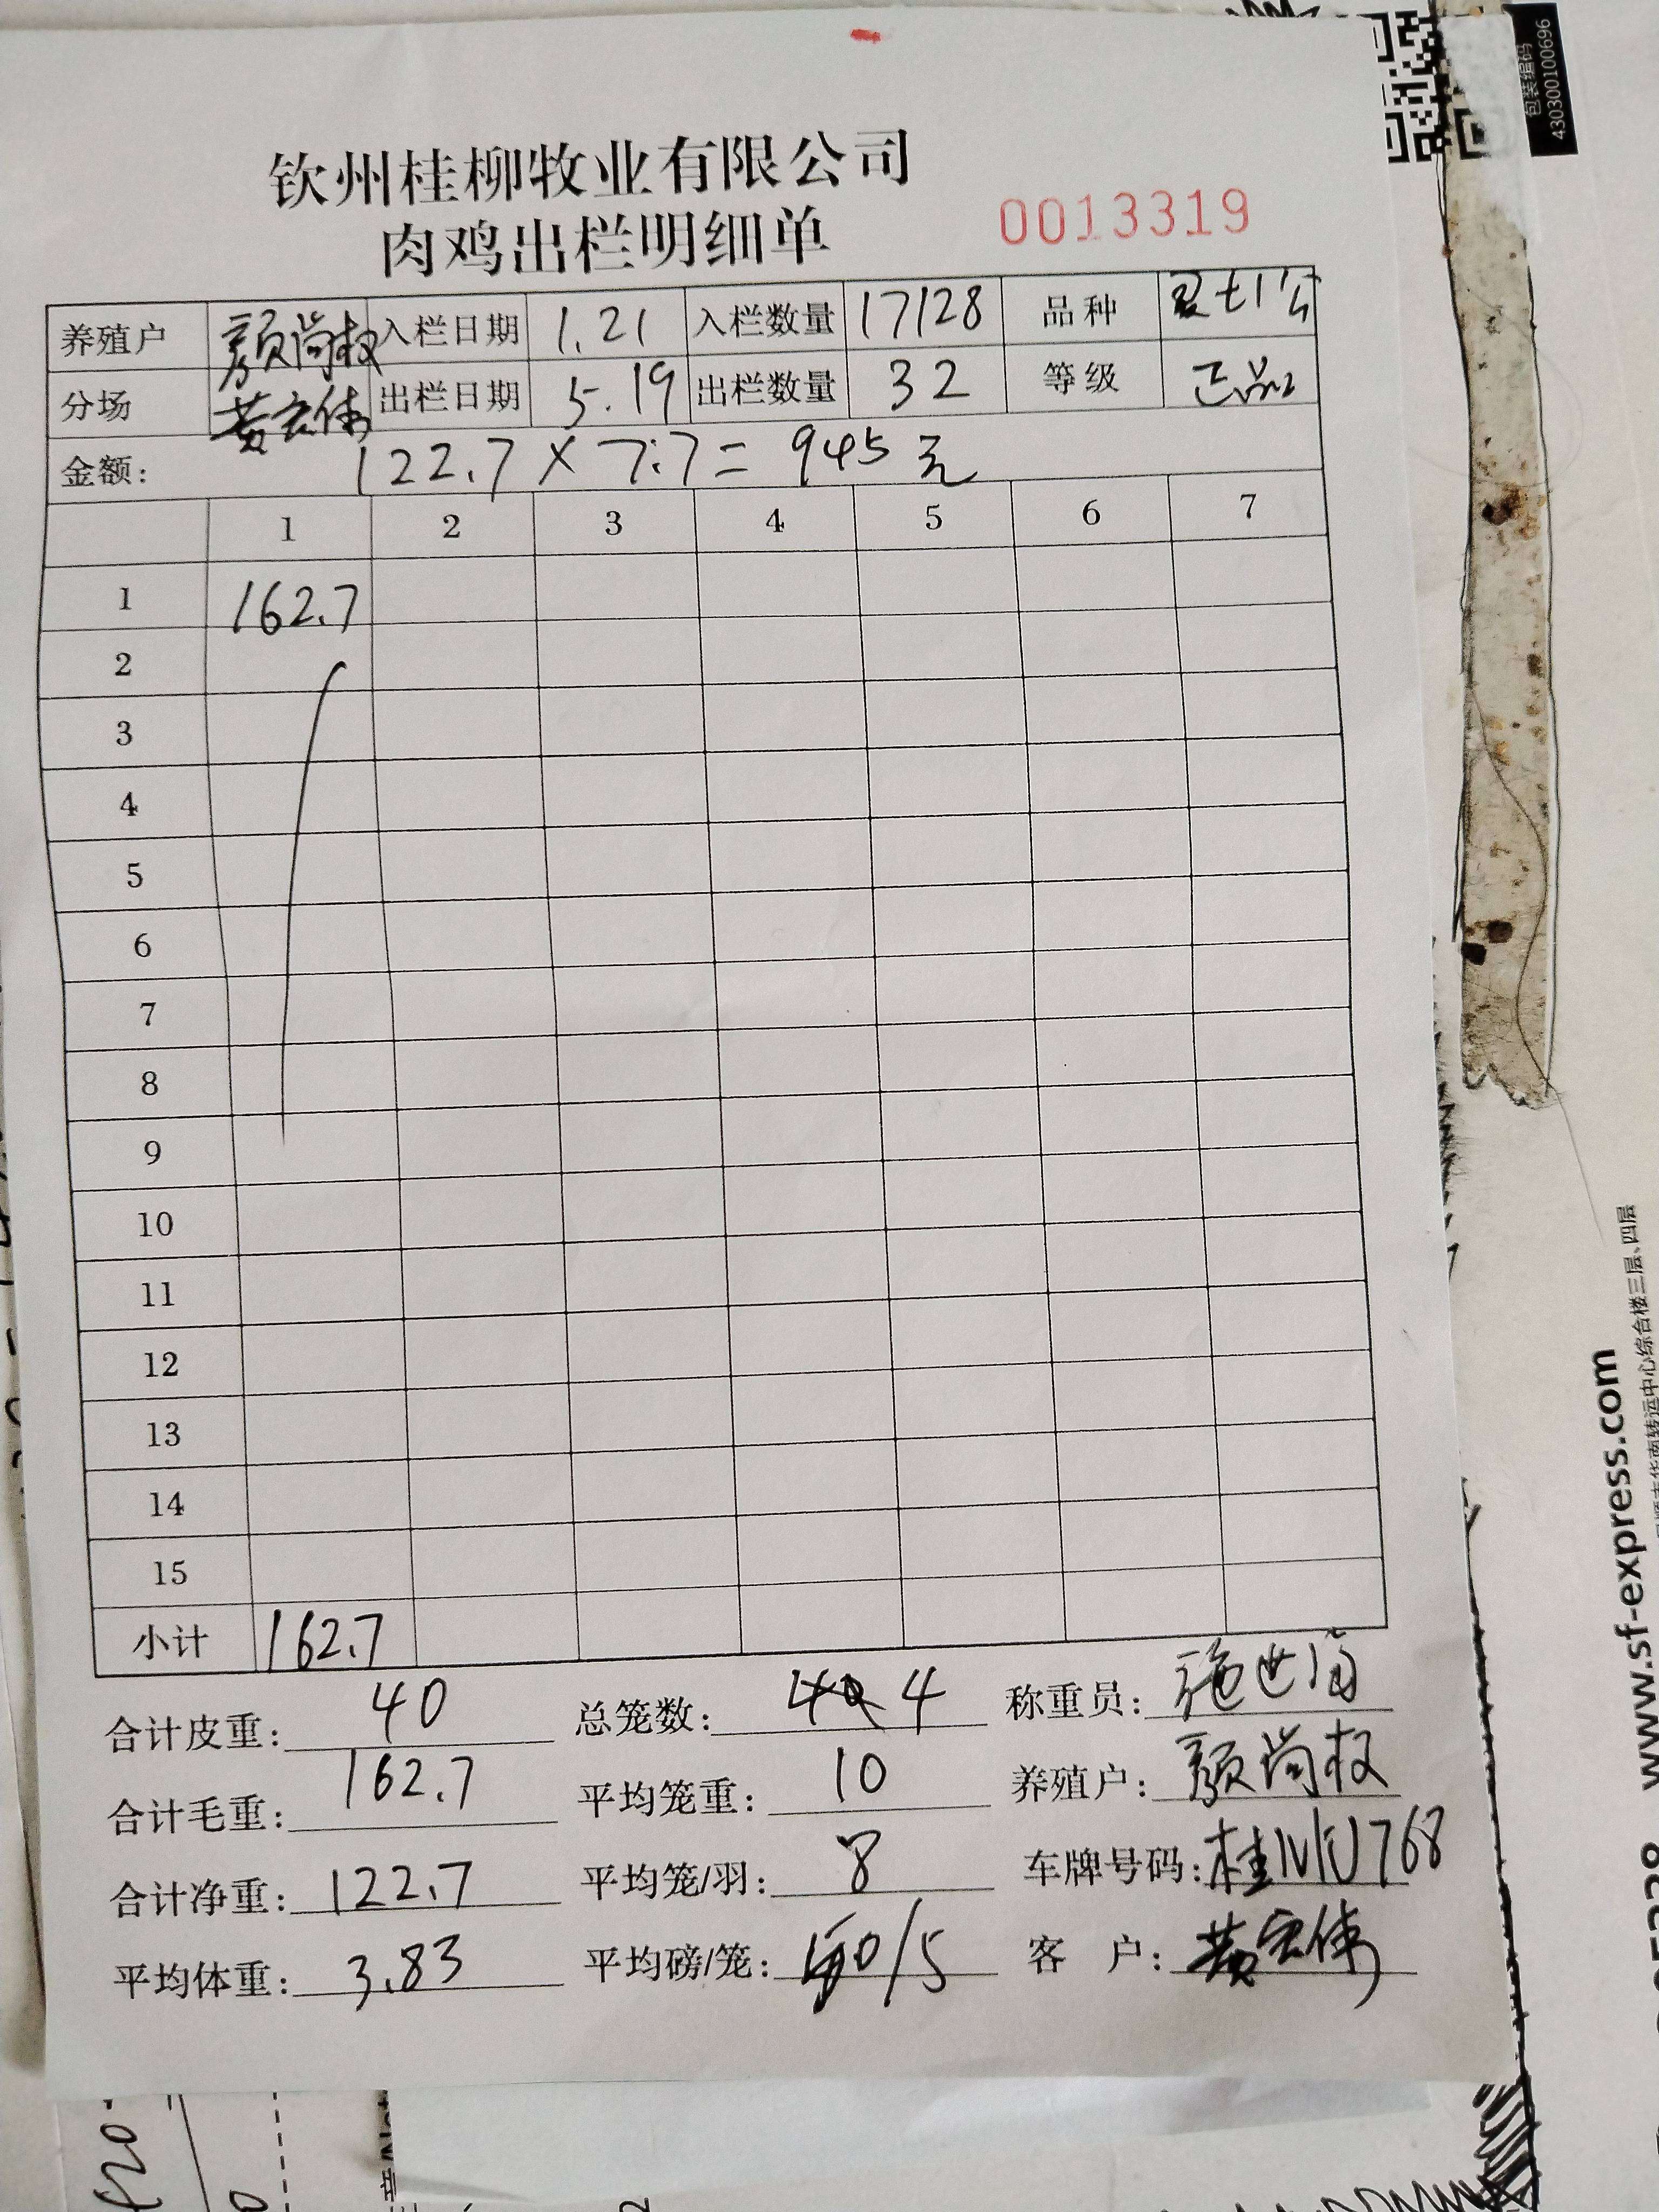 包装编码
430300100696
钦州桂柳牧业有限公司
肉鸡出栏明细单
0013319
养殖户 颜尚权 入栏日期 1.21 入栏数量 17128 品种
分场 黄宏伟 出栏日期 5.19 出栏数量 32 等级 正品
金额: 122.7 × 7.7 = 945元
1 2 3 4 5 6 7
1 162.7
2
3
4
5
6
7
8
9
10
11
12
13
14
15
小计 162.7
合计皮重: 40 总笼数: 4 称重员: 施世海
合计毛重: 162.7 平均笼重: 10 养殖户: 颜尚权
合计净重: 122.7 平均笼/羽: 8 车牌号码: 桂 768
平均体重: 3.83 平均磅/笼: /5 客 户: 黄宏伟
www.sf-express.com
转运中心综合楼三层、四层